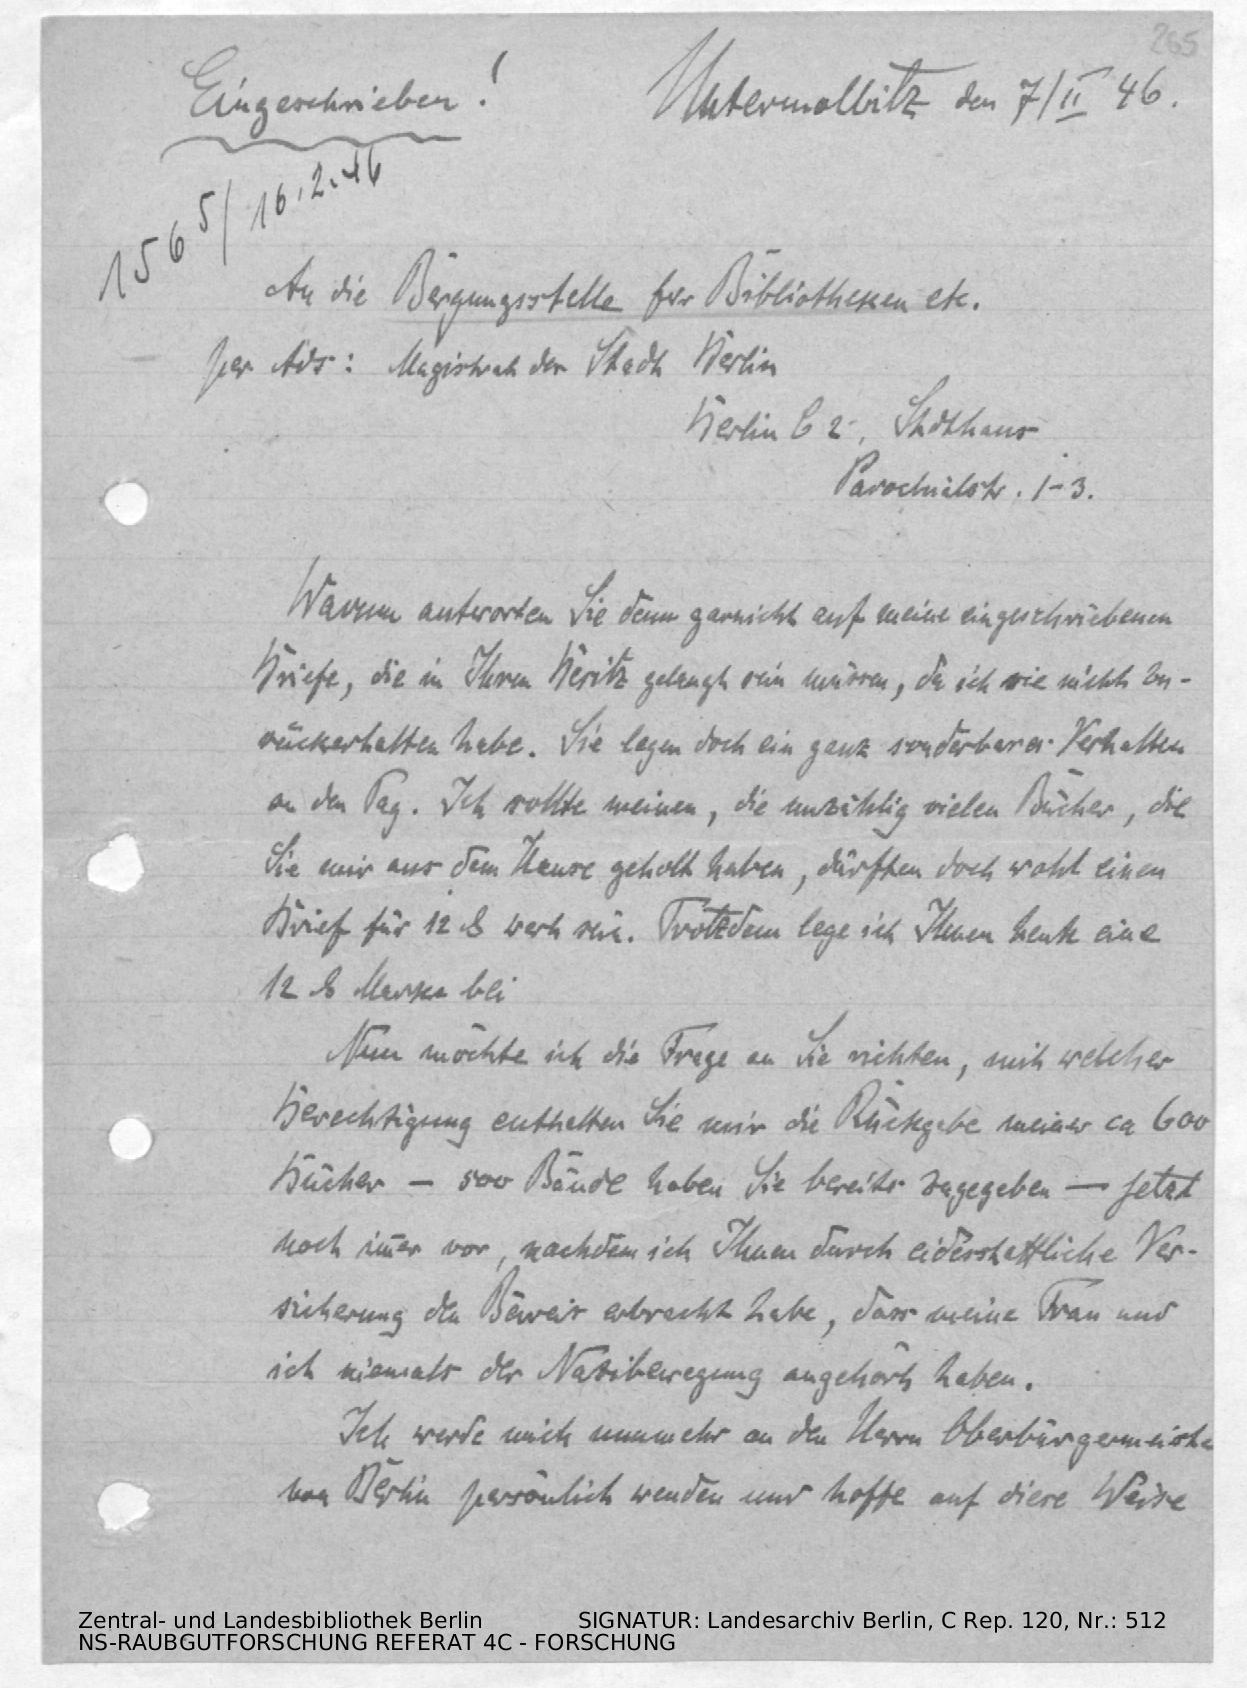 265
Eingeschrieben!
Untermolbitz den 7/II 46.
1565/16.2.46
An die Bergungsstelle für Bibliotheken etc.
per Ads: Magistrat der Stadt Berlin
Berlin C 2, Stdthaus
Parochialstr. 1-3.
Warum antworten Sie denn garnicht auf meine eingeschriebenen
Briefe, die in Ihren Besitz gelangt sein müssen, da ich sie nicht zu-
rückerhalten habe. Sie legen doch ein ganz sonderbares Verhalten
an den Tag. Ich sollte meinen, die unzählig vielen Bücher, die
Sie mir aus dem Hause geholt haben, dürften doch wohl einen
Brief für 12 ₰ wert sein. Trotzdem lege ich Ihnen heute eine
12 ₰ Marke bei
Nun möchte ich die Frage an Sie richten, mit welcher
Berechtigung enthalten Sie mir die Rückgabe meiner ca 600
Bücher — 500 Bände haben Sie bereits zugegeben — jetzt
noch im̅er vor, nachdem ich Ihnen durch eidesstattliche Ver-
sicherung den Beweis erbracht habe, dass meine Frau und
ich niemals der Nazibewegung angehört haben.
Ich werde mich nunmehr an den Herrn Oberbürgermeister
von Berlin persönlich wenden und hoffe auf diese Weise
Zentral- und Landesbibliothek Berlin SIGNATUR: Landesarchiv Berlin, C Rep. 120, Nr.: 512
NS-RAUBGUTFORSCHUNG REFERAT 4C - FORSCHUNG